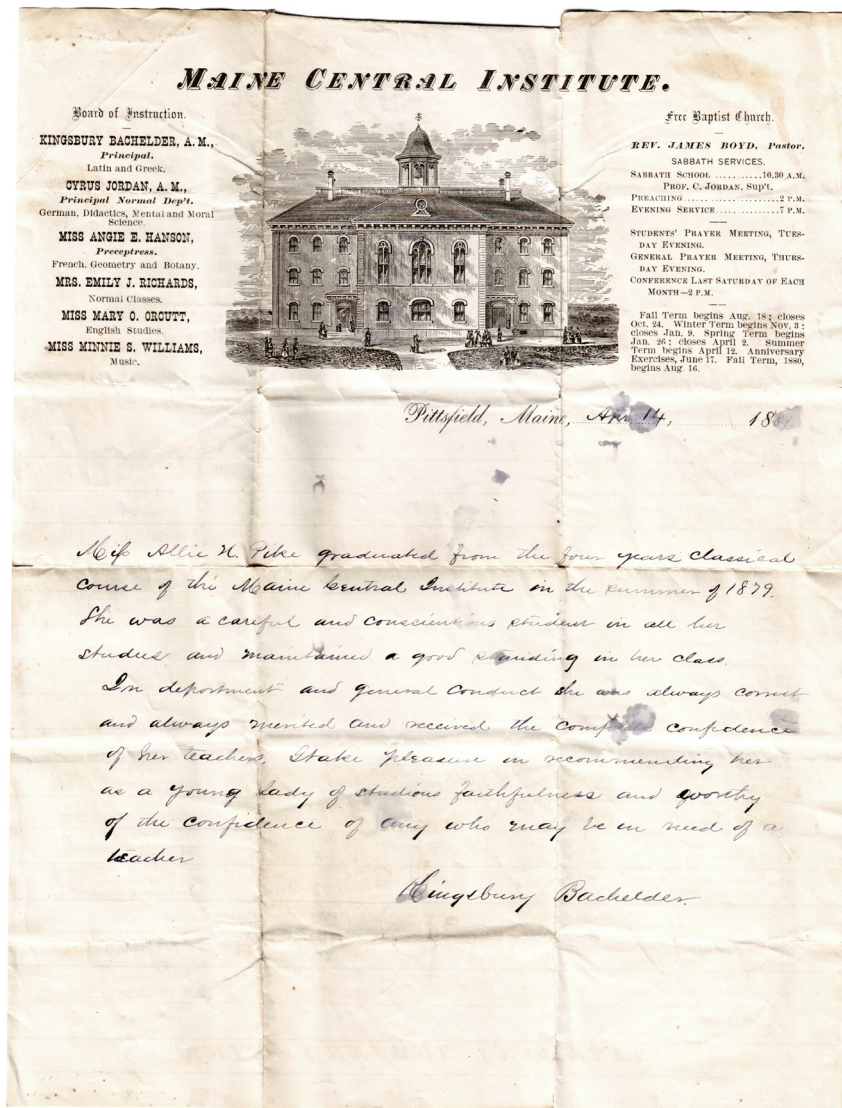 MAINE CENTRAL INSTITUTE.
Board of Instruction.
KINGSBURY BACHELDER, A. M.,
Principal.
Latin and Greek.
CYRUS JORDAN, A. M.,
Principal Normal Dep't.
German, Didactics, Mental and Moral
Science.
MISS ANGIE E. HANSON,
Preceptress.
French, Geometry and Botany.
MRS. EMILY J. RICHARDS,
Normal Classes.
MISS MARY O. ORCUTT,
English Studies.
MISS MINNIE S. WILLIAMS,
Music.
Free Baptist Church.
REV. JAMES BOYD, Pastor.
SABBATH SERVICES.
SABBATH SCHOOL ........... 10.30 A.M.
PROF. C. JORDAN, Sup't.
PREACHING ................... 2 P.M.
EVENING SERVICE ............. 7 P.M.
STUDENTS' PRAYER MEETING, TUES-
DAY EVENING.
GENERAL PRAYER MEETING, THURS-
DAY EVENING.
CONFERENCE LAST SATURDAY OF EACH
MONTH—2 P.M.
Fall Term begins Aug. 18; closes
Oct. 24. Winter Term begins Nov. 3;
closes Jan. 9. Spring Term begins
Jan. 26; closes April 2. Summer
Term begins April 12. Anniversary
Exercises, June 17. Fall Term, 1880,
begins Aug 16.
Pittsfield, Maine, Apr. 14, 18
Miss Allie N. Pike graduated from the four years classical
course of the Maine Central Institute in the summer of 1879.
She was a careful and conscientious student in all her
studies and maintained a good standing in her class.
In deportment and general conduct she was always correct
and always merited and received the complete confidence
of her teachers. I take pleasure in recommending her
as a young lady of studious faithfulness and worthy
of the confidence of any who may be in need of a
teacher
Kingsbury Bachelder.